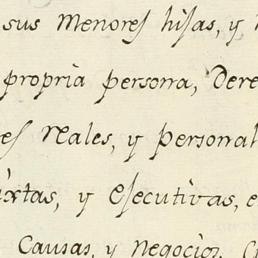 sus Menores hijas, y
propria persona, Dere
es reales, y personal
ixtas, y ejecutivas, e
Causas, y negocios, C